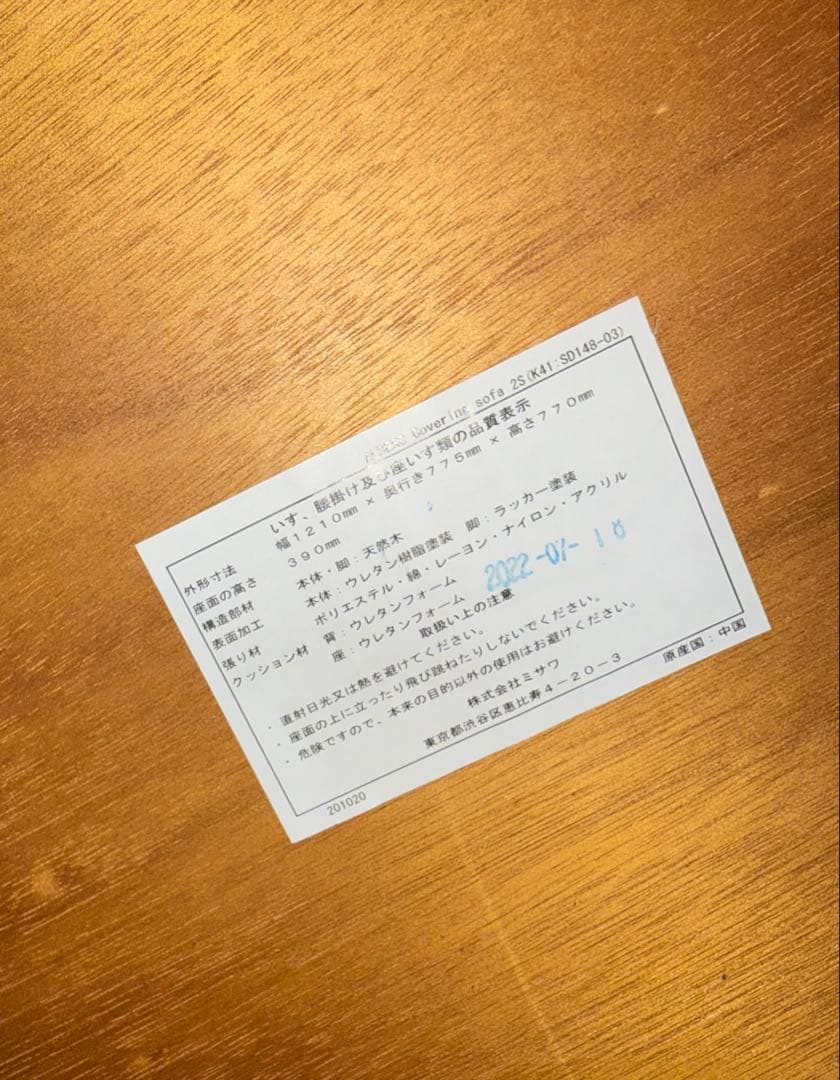 Covering sofa 2S(K41:SD148-03)
いす、腰掛け及び座いす類の品質表示
外形寸法 幅1210mm × 奥行き775mm × 高さ770mm
座面の高さ 390mm
構造部材 本体・脚:天然木
表面加工 本体:ウレタン樹脂塗装 脚:ラッカー塗装
張り材 ポリエステル・綿・レーヨン・ナイロン・アクリル
クッション材 背:ウレタンフォーム
座:ウレタンフォーム
2022-07-18
取扱い上の注意
・直射日光又は熱を避けてください。
・座面の上に立ったり飛び跳ねたりしないでください。
・危険ですので、本来の目的以外の使用はお避けください。
株式会社ミサワ
東京都渋谷区恵比寿4-20-3
原産国:中国
201020